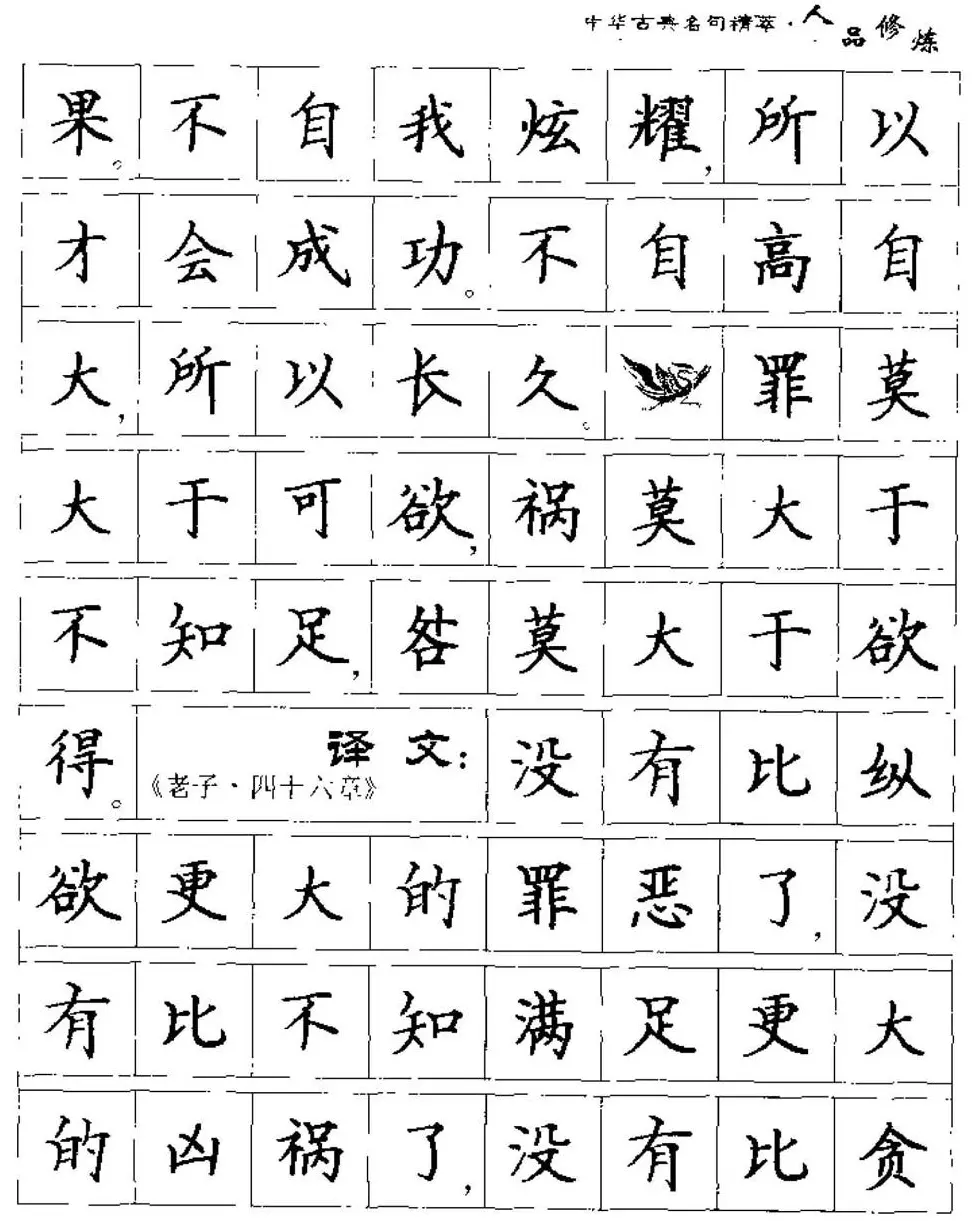 中华古典名句精萃·人品修炼
果。不自我炫耀,所以
才会成功。不自高自
大,所以长久。罪莫
大于可欲,祸莫大于
不知足,咎莫大于欲
得。《老子·四十六章》译文:没有比纵
欲更大的罪恶了,没
有比不知满足更大
的凶祸了,没有比贪